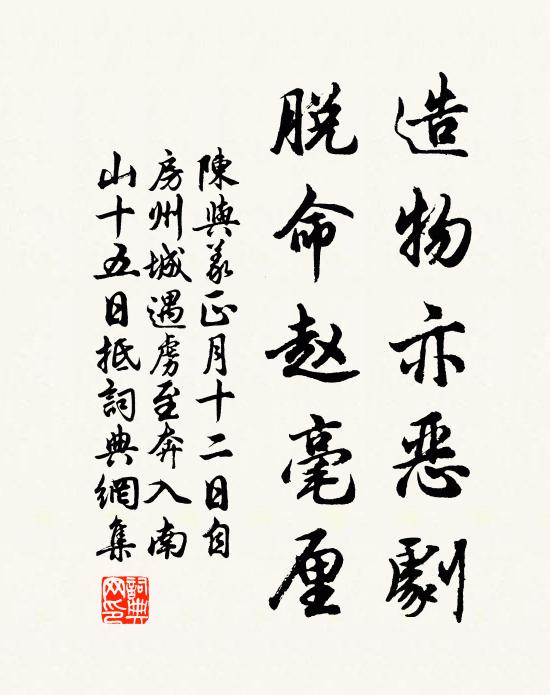 造物亦恶劇
脱命赵毫厘
陳與義正月十二日自
房州城遇虜至奔入南
山十五日抵詞典網集
詞典网印